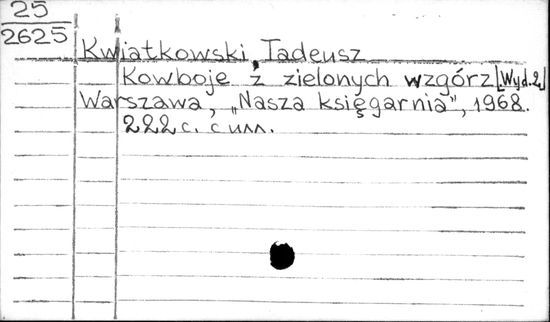 25
2625
Kwiatkowski Tadeusz
Kowboje z zielonych wzgórz [Wyd. 2]
Warszawa, „Nasza księgarnia”, 1968.
222 с. с илл.